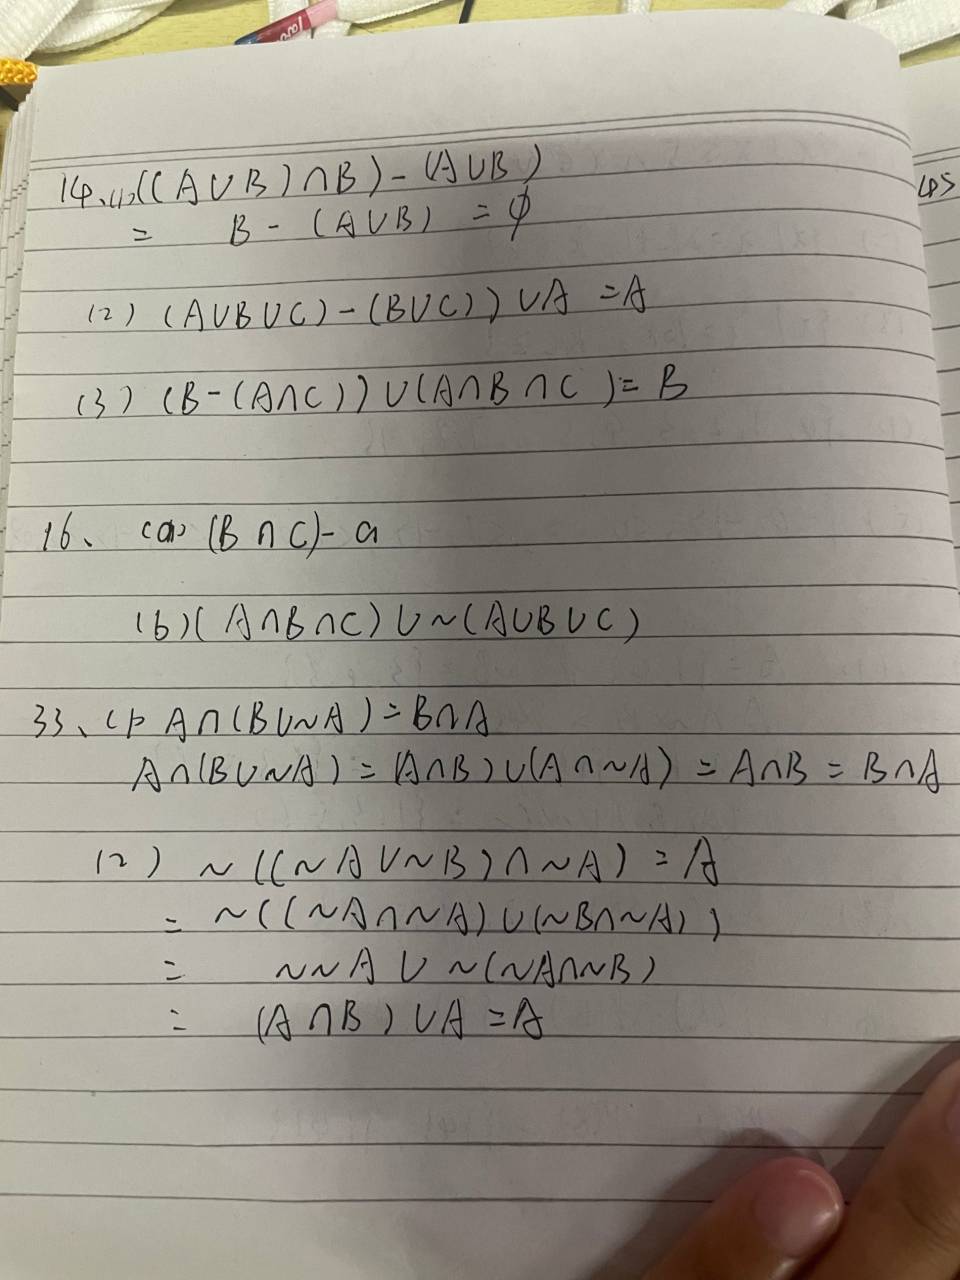 14、(1)((A∪B)∩B)-(A∪B)
= B-(A∪B) = ϕ
(2) (A∪B∪C)-(B∪C))∪A =A
(3) (B-(A∩C))∪(A∩B∩C)= B
16、 (a) (B∩C)-a
(b)(A∩B∩C)∪~(A∪B∪C)
33、(1) A∩(B∪~A)=B∩A
A∩(B∪~A)=(A∩B)∪(A∩~A) = A∩B = B∩A
(2) ~((~A∪~B)∩~A) = A
= ~((~A∩~A)∪(~B∩~A))
= ~~A ∪ ~(~A∩~B)
= (A∩B)∪A =A
45